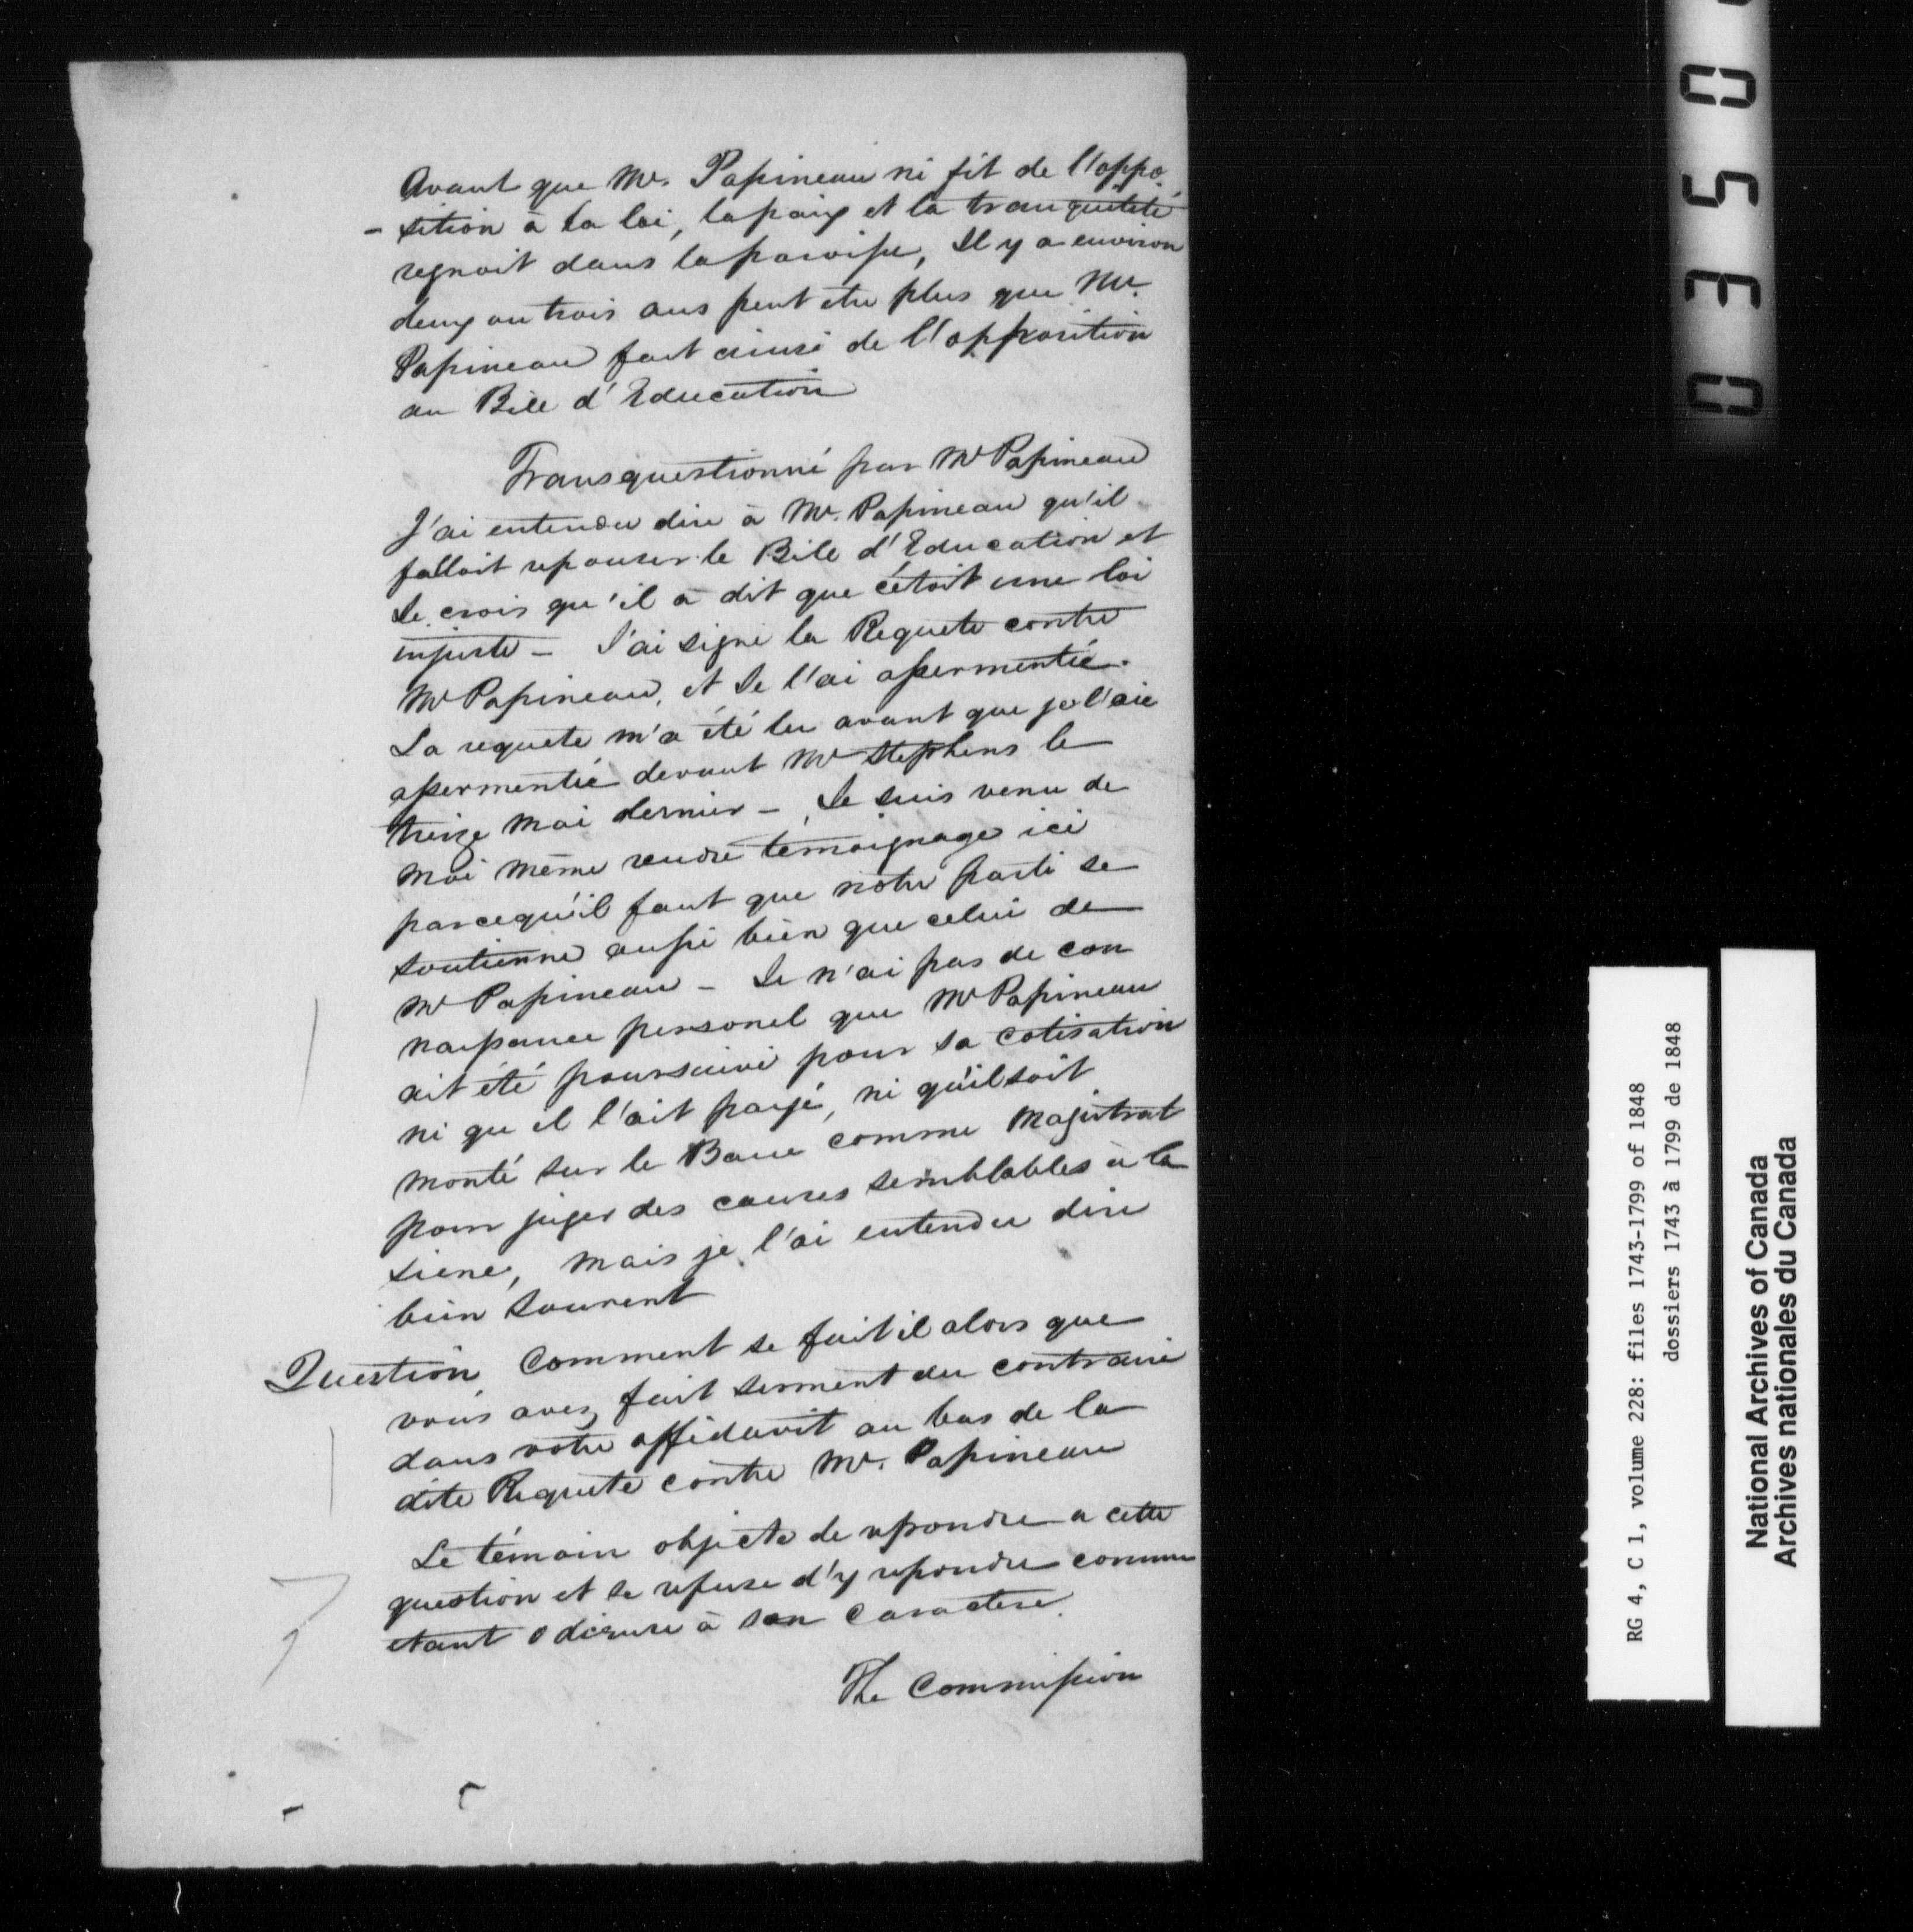 Avant que Mr. Papineau ni fit de l'oppo
- sition à la loi, la paix et la tranquilité
regnoit dans la paroisse, Il y a environ
deux ou trois ans peut etre plus que Mr.
Papineau fait ainsi de l'opposition
au Bile d'Education
Transquestionné par Mr Papineau
J'ai entendu dire à Mr. Papineau qu'il
falloit repouser le Bile d'Education et
Je crois qu'il a dit que c'étoit une loi
injuste - J'ai signé la Requete contre
Mr Papineau, et Je l'ai assermentié.
La requete m'a été lu avant que je l'aie
assermentié devant Mr Stephens le
treize Mai dernier - Je suis venu de
moi même rendre temoignage ici
parcequ'il faut que notre parti se
soutienne aussi bien que celui de
Mr Papineau - Je n'ai pas de con
naissance personel que Mr Papineau
ait été poursuivi pour sa cotisation
ni qu il l'ait payé, ni qu'il soit
monté sur le Banc comme Magistrat
pour juger des causes semblables à la
siene, mais je l'ai entendu dire
bien souvent
Question Comment se fait il alors que
vous avez fait serment du contraire
dans votre affidavit au bas de la
dite Requete contre Mr. Papineau
Le témoin objecte de repondre a cette
question et se refuse d'y repondre comme
etant odieuse à son caractere.
The Commission
0350
RG 4, C 1, volume 228: files 1743-1799 of 1848
dossiers 1743 à 1799 de 1848
National Archives of Canada
Archives nationales du Canada